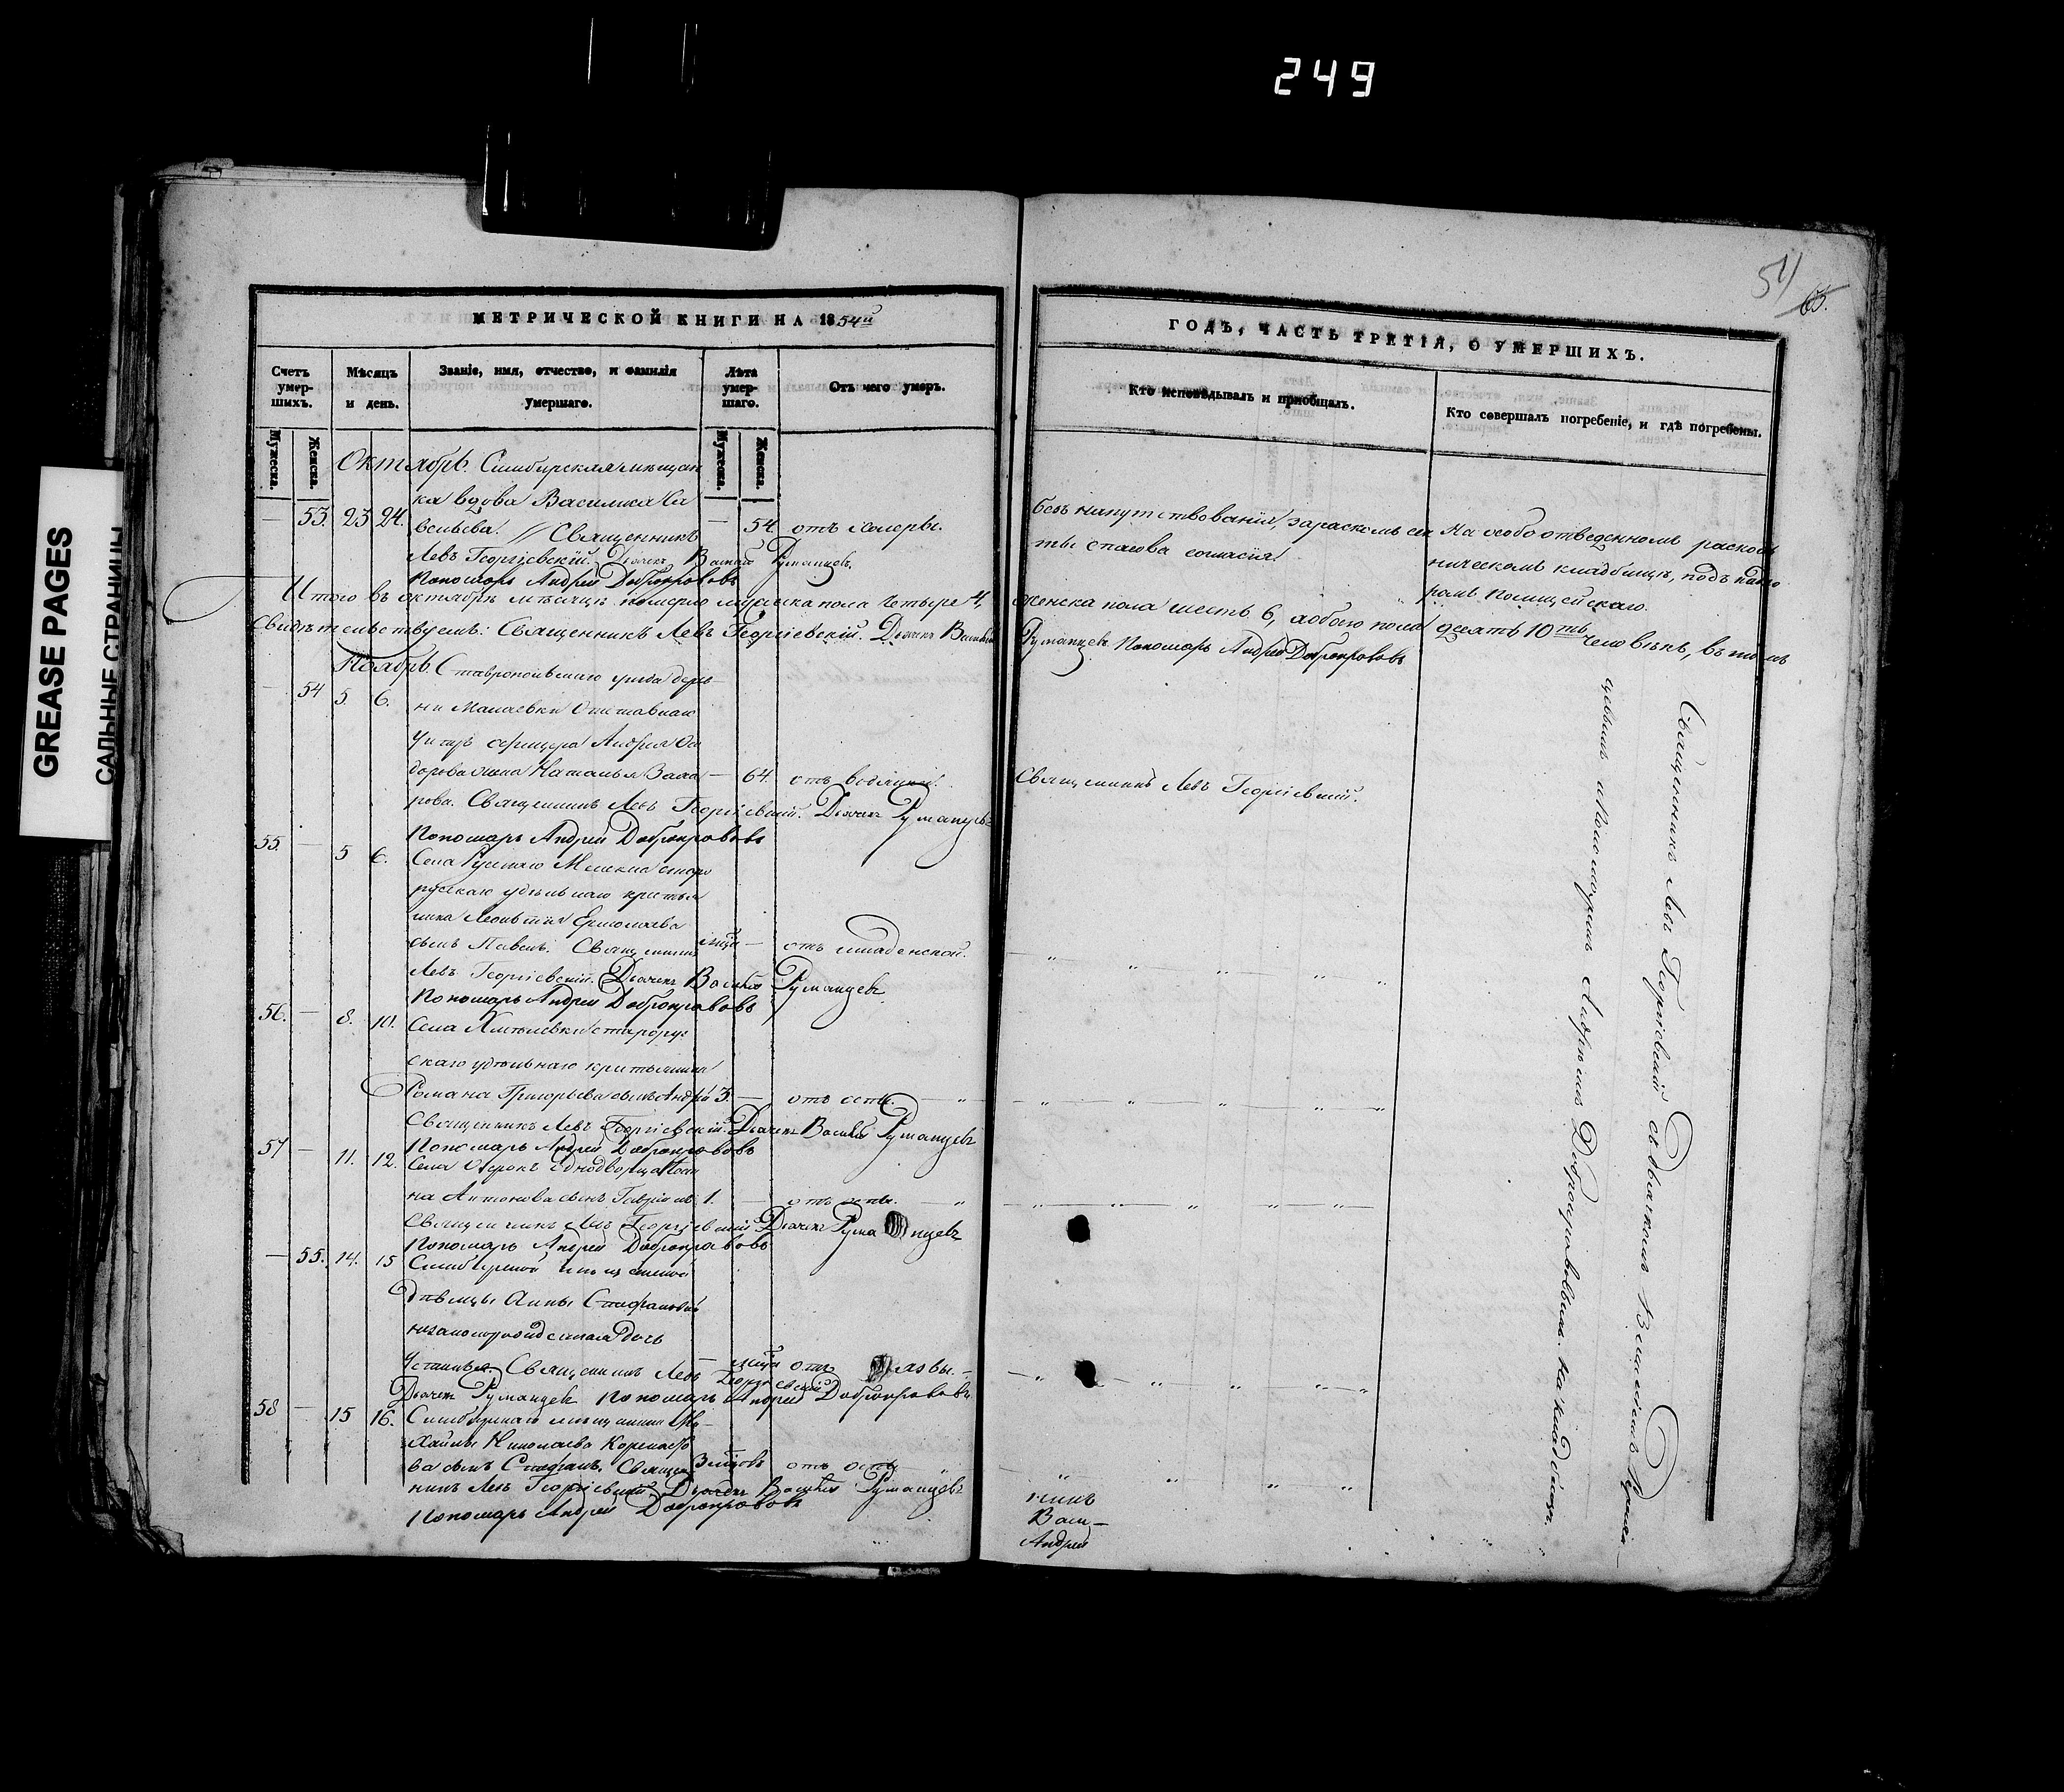 249
GREASE PAGES
САЛЬНЫЕ СТРАНИЦЫ
51
65.
МЕТРИЧЕСКОЙ КНИГИ НА 1854й
Счетъ умер-шихъ.
Мѣсяцъ и день.
Званіе, имя, отчество, и фамилія умершаго.
Лѣта умер-шаго.
Отъ чего умеръ.
Мужеска.
Женска.
Мужеска.
Женска.
Октябрь. Симбирская мещан
ка вдова Василиса Са
— 53. 23 24. вельева. // Священникъ — 54. отъ холеры.
Левъ Георгіевскій. Дьячекъ Василій Румянцевъ.
Пономарь Андрей Добронравовъ
Итого въ октябрѣ мѣсяцѣ померло мужеска пола четыре 4,
Свидѣтельствуемъ: Священникъ Левъ Георгіевскій. Дьячекъ Василій
Ноябрь. Ставропольскаго уѣзда дерев-
— 54 5. 6. ни
Унтеръ офицера Андрея
жена Наталья — 64. отъ водяной.
Священникъ Левъ Георгіевскій. Дьячекъ Румянцевъ
Пономарь Андрей Добронравовъ
55. — 5 6. Села Русскаго Мелекеса старо
русскаго удѣльнаго крестья
нина Леонтія Ермолаева
сынъ Павелъ. Священникъ — отъ младенской.
Левъ Георгіевскій. Дьячекъ Василій Румянцевъ
Пономарь Андрей Добронравовъ
56. — 8. 10. Села Хмелевки старорус
скаго удѣльнаго крестьянина
Романа Григорьева сынъ Андрей 3. — отъ оспы.
Священникъ Левъ Георгіевскій. Дьячекъ Василій Румянцевъ
Пономарь Андрей Добронравовъ
57 — 11. 12. Села однодворца
на Антонова сынъ Гавріилъ 1. — отъ оспы.
Священникъ Левъ Георгіевскій Дьячекъ Румянцевъ
Пономарь Андрей Добронравовъ
— 55. 14. 15 Симбирской
дѣвицы Анны
дочь
Священникъ Левъ Георгіевскій отъ
Дьячекъ Румянцевъ Пономарь Андрей Добронравовъ
58 — 15 16. Симбирскаго мещанина Ми-
хайлы Николаева
ва сынъ Стефанъ. Священ отъ оспы
никъ Левъ Георгіевскій Дьячекъ Василій Румянцевъ
Пономарь Андрей Добронравовъ
ГОДЪ, ЧАСТЬ ТРЕТІЯ, О УМЕРШИХЪ.
Кто исповѣдывалъ и пріобщалъ.
Кто совершалъ погребеніе, и гдѣ погребены.
безъ напутствованія, за раскомъ сек
ты спасова согласія.
На особо отведенномъ расколь
ническомъ кладбищѣ, подъ надзо
ромъ Полицейскаго.
женска пола шесть 6, а обоего пола десять 10ть человѣкъ, въ томъ
Румянцевъ Пономарь Андрей Добронравовъ
Священникъ Левъ Георгіевскій.
Священникъ Левъ Георгіевскій съ дьячкомъ Василіемъ Румян-
цевымъ и Пономаремъ Андреемъ Добронравовымъ. на кладбищѣ.
никъ
Васи-
Андрей